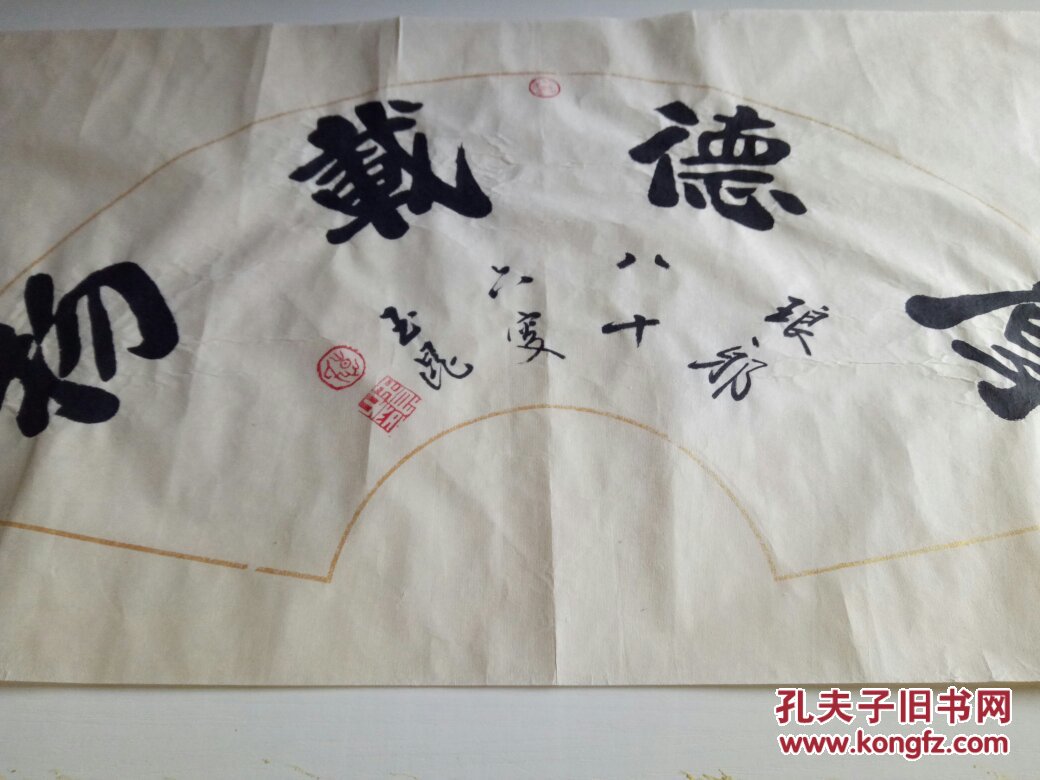 厚德載物
琅邪
八十
六叟
玉
孔夫子旧书网
www.kongfz.com